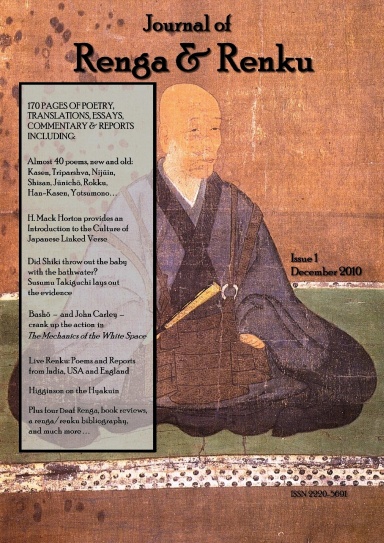 Journal of
Renga & Renku
170 PAGES OF POETRY,
TRANSLATIONS, ESSAYS,
COMMENTARY & REPORTS
INCLUDING:
Almost 40 poems, new and old:
Kasen, Triparshva, Nijūin,
Shisan, Jūnichō, Rokku,
Han-Kasen, Yotsumono...
H. Mack Horton provides an
Introduction to the Culture of
Japanese Linked Verse
Did Shiki throw out the baby
with the bathwater?
Susumu Takiguchi lays out
the evidence
Bashō – and John Carley –
crank up the action in
The Mechanics of the White Space
Live Renku: Poems and Reports
from India, USA and England
Higginson on the Hyakuin
Plus four Deaf Renga, book reviews,
a renga/renku bibliography,
and much more...
Issue 1
December 2010